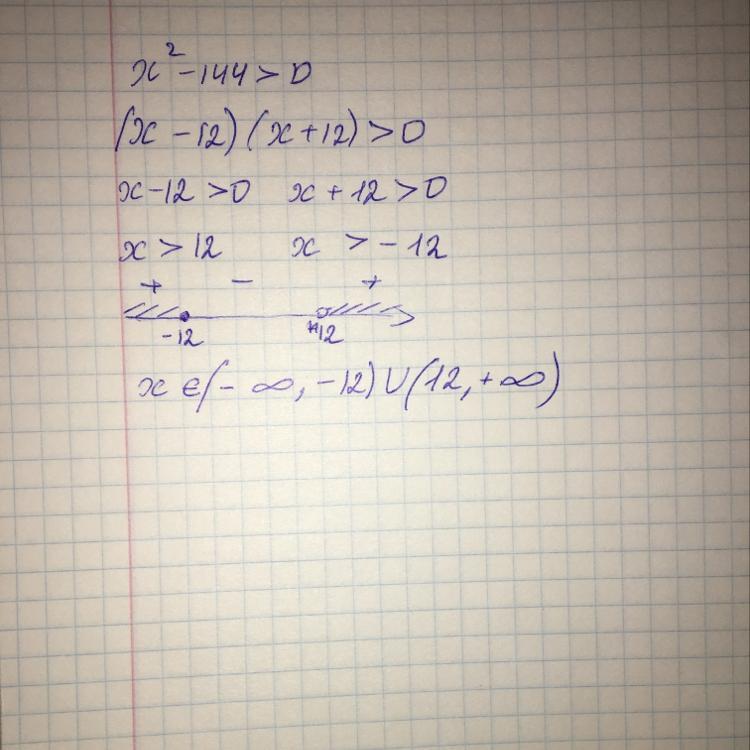 x² - 144 > 0
(x - 12) (x + 12) > 0
x - 12 > 0 x + 12 > 0
x > 12 x > - 12
+ - +
-12 12
x ∈ (- ∞, -12) ∪ (12, +∞)